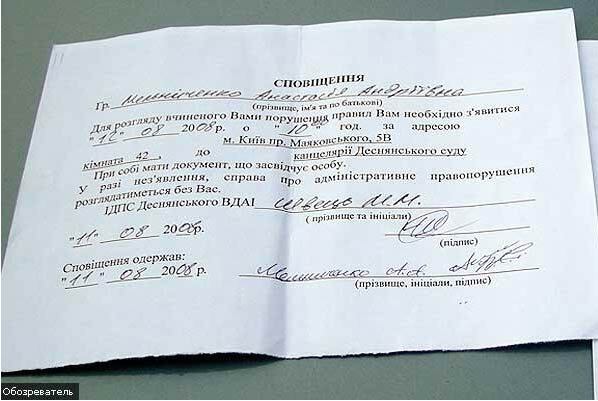 СПОВІЩЕННЯ
Гр. Мельніченко Анастасія Андріївна
(прізвище, ім'я та по батькові)
Для розгляду вчиненого Вами порушення правил Вам необхідно з'явитися
"12" 08 2008р. о "10⁰⁰ год. за адресою
м. Київ пр. Маяковського, 5В
кімната 42, до канцелярії Деснянського суду
При собі мати документ, що засвідчує особу.
У разі нез'явлення, справа про адміністративне правопорушення
розглядатиметься без Вас.
ІДПС Деснянського ВДАІ Швець М.М.
( прізвище та ініціали)
"11" 08 2008р.
(підпис)
Сповіщення одержав:
"11" 08 2008р. Мельниченко А.А.
(прізвище, ініціали, підпис)
Обозреватель